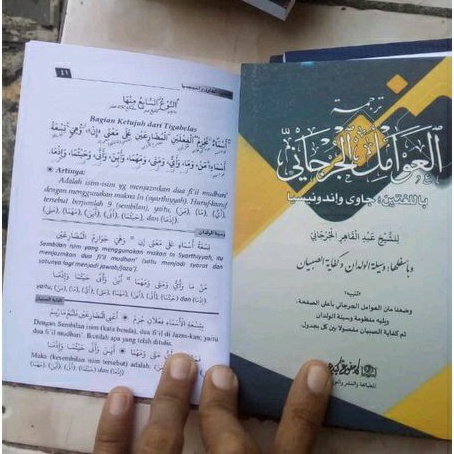 ٤٦
النَّوْعُ السَّابِعُ مِنْهَا
Bagian Ketujuh dari Tigabelas
أَسْمَاءٌ تَجْزِمُ الْفِعْلَيْنِ الْمُضَارِعَيْنِ عَلَى مَعْنَى «إِنْ» وَهِيَ تِسْعَةُ
أَسْمَاءٍ: مَنْ، وَمَا، وَأَيٌّ، وَمَتَى، وَمَهْمَا، وَأَيْنَ، وَأَنَّى، وَحَيْثُمَا، وَإِذْمَا.
Artinya:
Adalah isim-isim yg menjazmkan dua fi'il mudhari'
dengan menggunakan makna In (syarthiyyah). Huruf/isim
tersebut berjumlah 9 (sembilan), yaitu; (مَنْ), (مَا), (أَيٌّ),
(مَتَى), (مَهْمَا), (أَيْنَ), (أَنَّى), (حَيْثُمَا), dan (إِذْمَا).
وسيلة الولدان
تِسْعَةُ أَسْمَاءٍ عَلَى مَعْنَى " إِنْ " وَهْيَ جَوَازِمُ الْمُضَارِعِ
Sembilan isim yang menggunakan makan In Syarthiyyah, itu
menjazmkan dua fi'il mudhari' (satu menjadi syarat dan
satunya lagi menjadi jawab/jaza').
مَنْ مَا وَأَيٌّ وَمَتَى وَمَهْمَا * أَيْنَ وَأَنَّى حَيْثُمَا وَإِذْمَا
yaitu,
كفاية الصبيان
بِتِسْعَةِ الْأَسْمَاءِ فِعْلَانِ جُزِمْ
Dengan Sembilan isim (kata benda), dua fi'il di Jazm-kan; yaitu
dua fi'il mudhari'. Ikutilah apa yang telah ditulis.
Maka (kesembilan isim tersebut) adalah,
dan (إِذْمَا).
ترجمة
العوامل الجرجاني
باللغتين: جاوى واندونيسيا
للشيخ عبد القاهر الجرجاني
وبأسفلها: وسيلة الولدان وكفاية الصبيان
التنبيه:
وضعنا متن العوامل الجرجاني بأعلى الصفحة،
ويليه منظومة وسيلة الولدان
ثم كفاية الصبيان مفصولا بين كل بجدول.